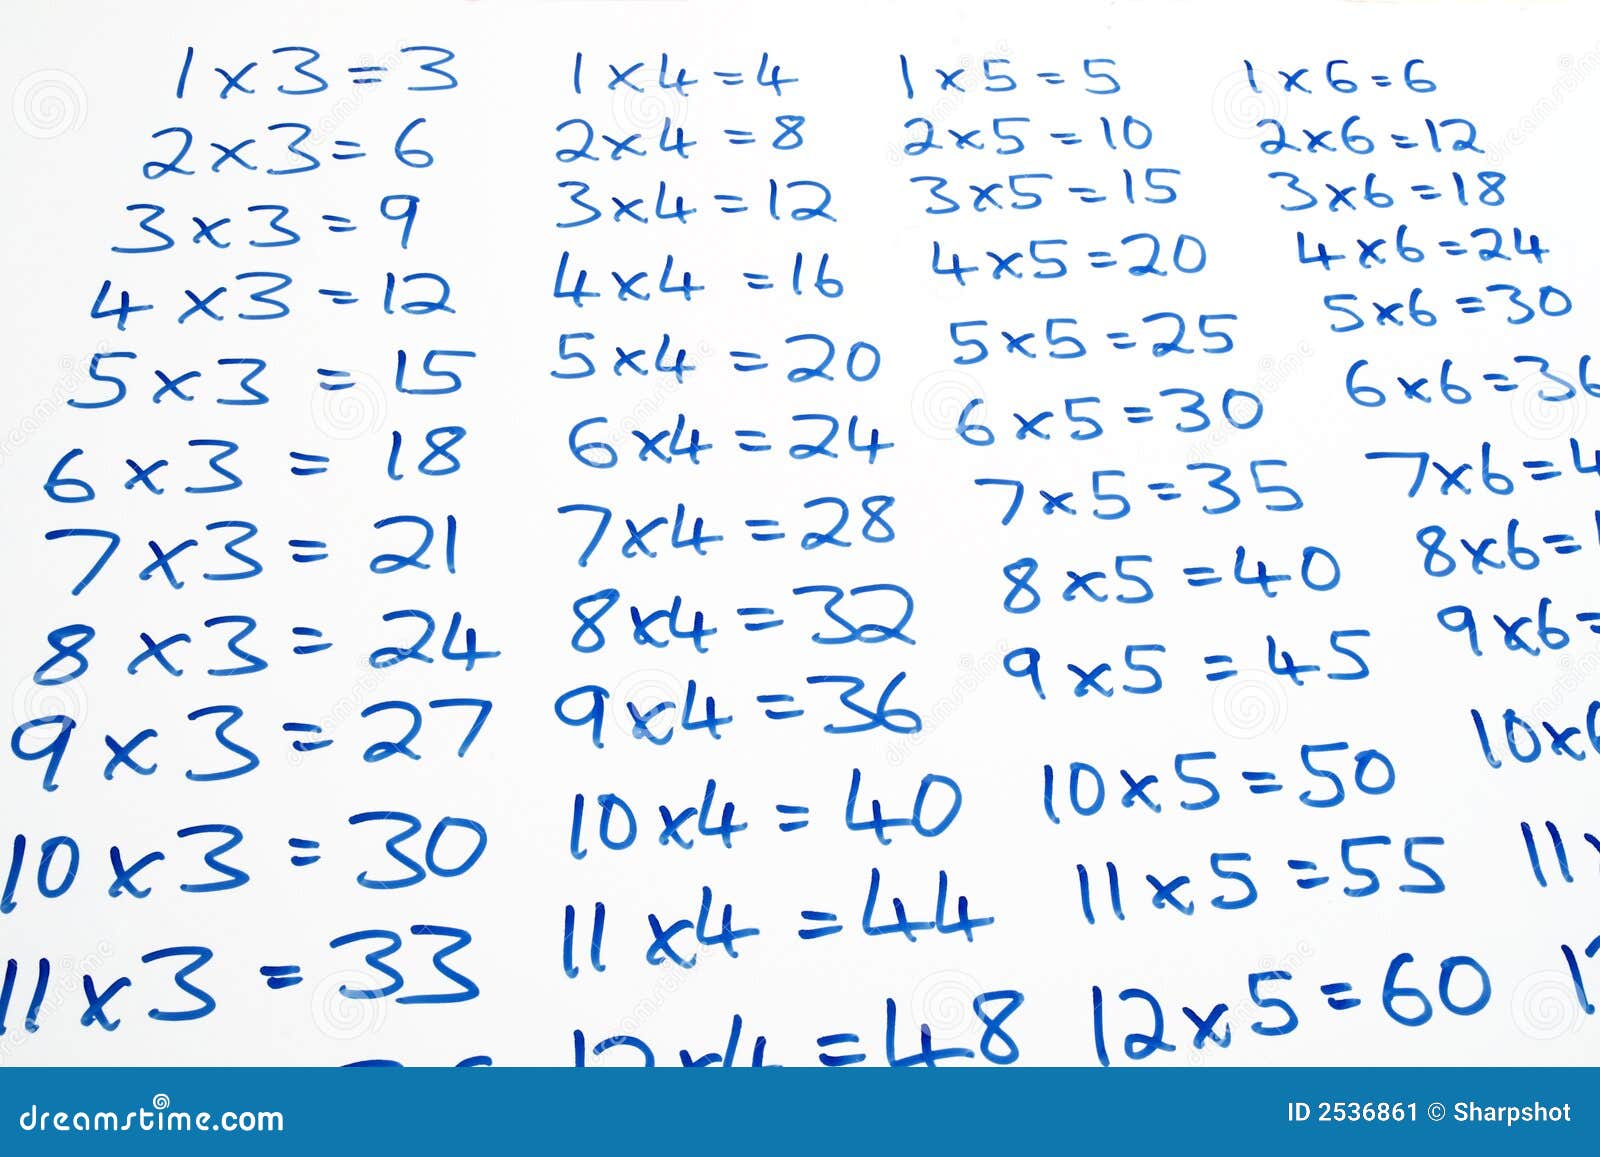 1 x 3 = 3
2 x 3 = 6
3 x 3 = 9
4 x 3 = 12
5 x 3 = 15
6 x 3 = 18
7 x 3 = 21
8 x 3 = 24
9 x 3 = 27
10 x 3 = 30
11 x 3 = 33
1 x 4 = 4
2 x 4 = 8
3 x 4 = 12
4 x 4 = 16
5 x 4 = 20
6 x 4 = 24
7 x 4 = 28
8 x 4 = 32
9 x 4 = 36
10 x 4 = 40
11 x 4 = 44
12 x 4 = 48
1 x 5 = 5
2 x 5 = 10
3 x 5 = 15
4 x 5 = 20
5 x 5 = 25
6 x 5 = 30
7 x 5 = 35
8 x 5 = 40
9 x 5 = 45
10 x 5 = 50
11 x 5 = 55
12 x 5 = 60
1 x 6 = 6
2 x 6 = 12
3 x 6 = 18
4 x 6 = 24
5 x 6 = 30
6 x 6 = 36
7 x 6 = 4
8 x 6 =
9 x 6 =
10 x 6
11 x
dreamstime.com
ID 2536861 © Sharpshot